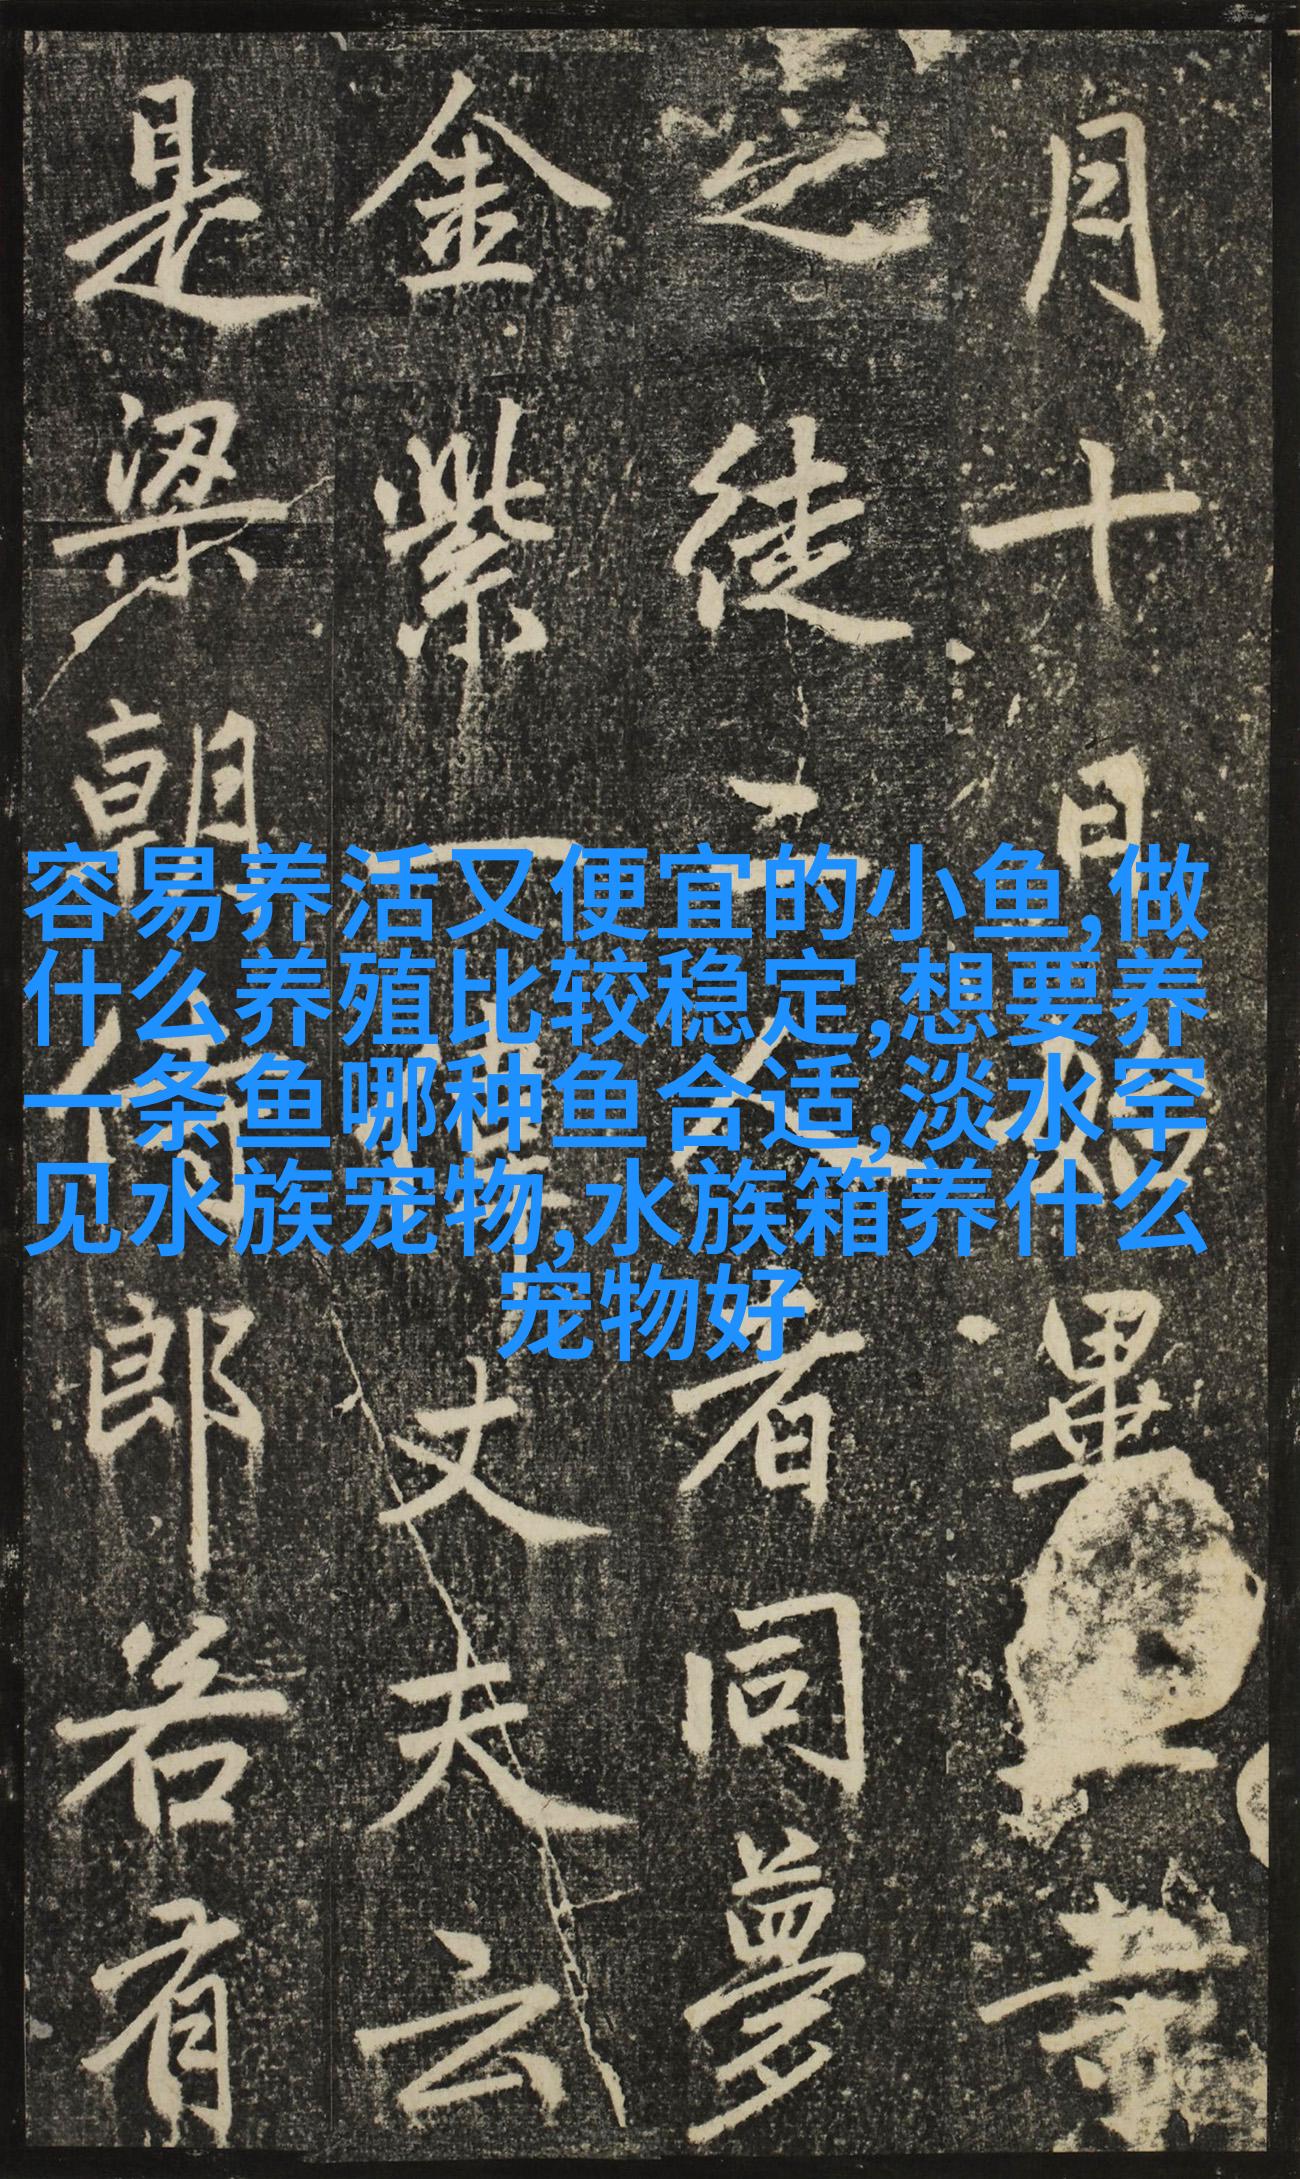 容易养活又便宜的小鱼,做
什么养殖比较稳定,想要养
一条鱼哪种鱼合适,淡水罕
见水族宠物,水族箱养什么
宠物好
月十月始畢
之徒人者同夢
金紫一丈夫云
是梁朝侍郎若有